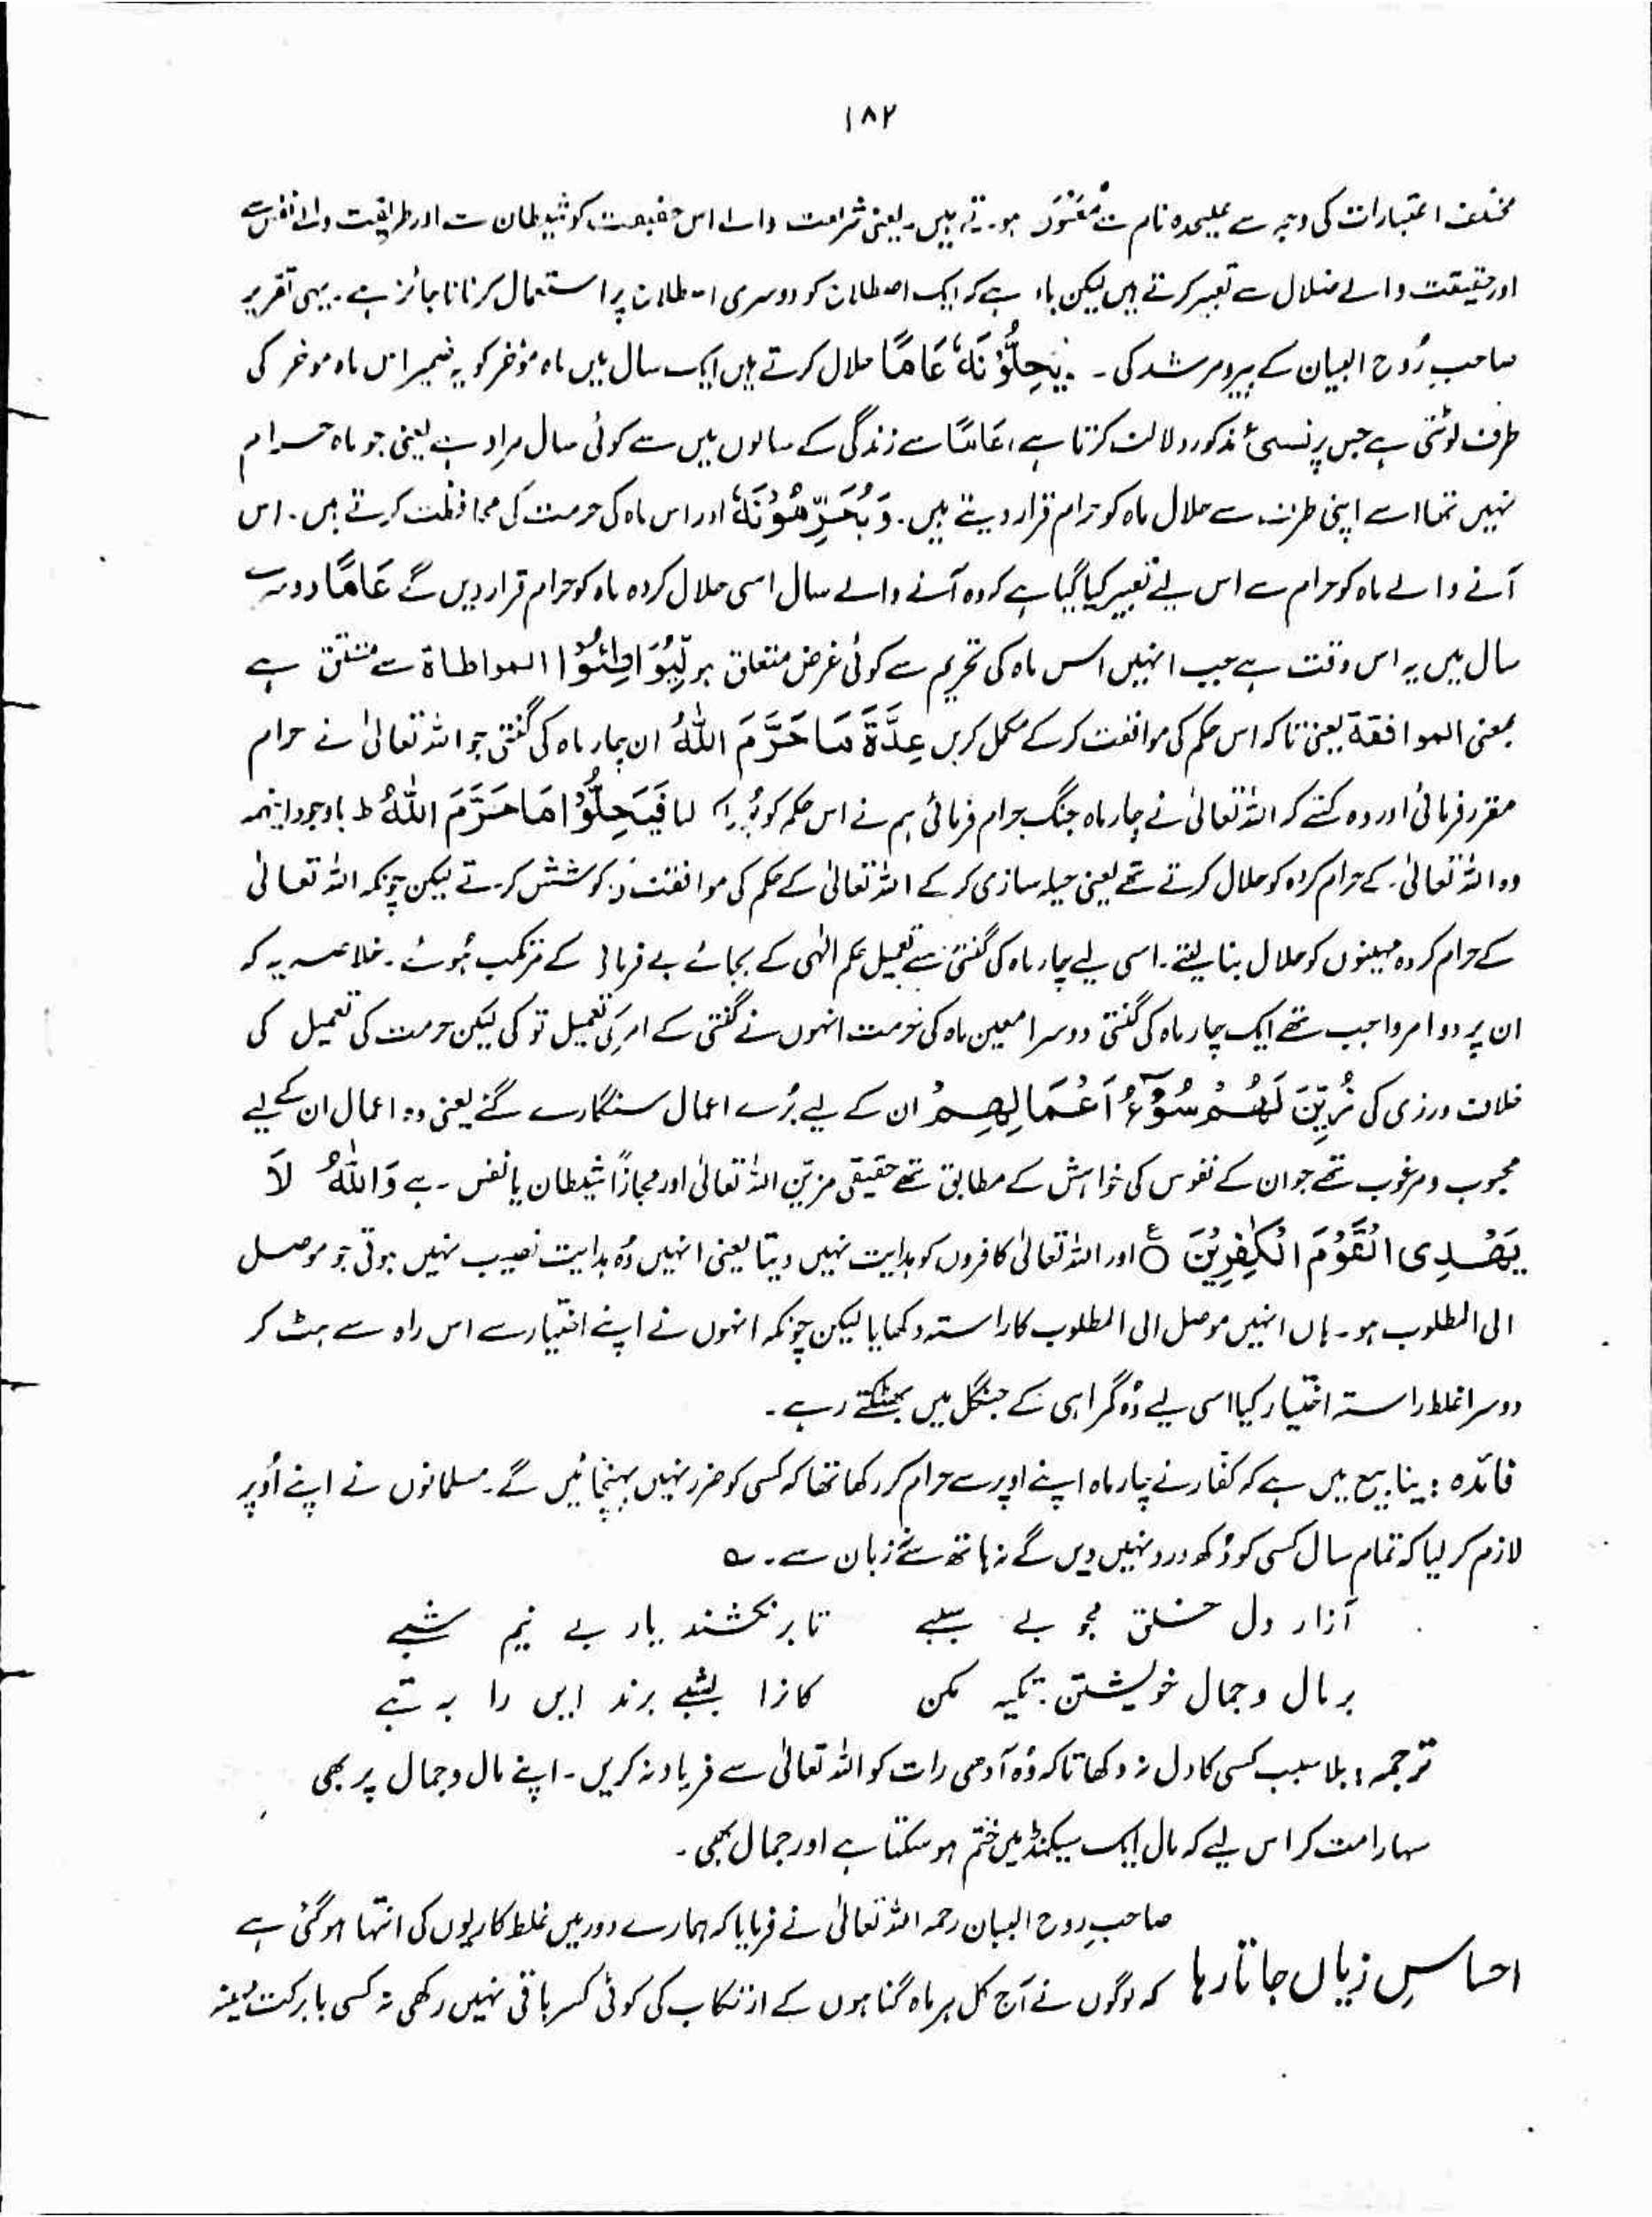 ۱۸۲
مختلف اعتبارات کی وجہ سے علیحدہ نام سے معنون ہوتے ہیں۔ یعنی شریعت والے اس حقیقت کو شیطان سے اور طریقت والے نفس سے
اور حقیقت والے ضلال سے تعبیر کرتے ہیں لیکن یاد رہے کہ ایک اصطلاح کو دوسری اصطلاح پر استعمال کرنا ناجائز ہے۔ یہی تقریر
صاحبِ رُوح البیان کے پیر و مرشد کی۔ یُحِلُّوْنَہٗ عَامًا حلال کرتے ہیں ایک سال میں ماہ مؤخر کو یہ ضمیر اس ماہ موخر کی
طرف لوٹتی ہے جس پر نسیء مذکور دلالت کرتا ہے، عَامًا سے زندگی کے سالوں میں سے کوئی سال مراد ہے یعنی جو ماہ حرام
نہیں تھا اسے اپنی طرف سے حلال ماہ کو حرام قرار دیتے ہیں۔ وَیُحَرِّمُوْنَہٗ اور اس ماہ کی حرمت کی محافظت کرتے ہیں۔ اس
آنے والے ماہ کو حرام سے اس لیے تعبیر کیا گیا ہے کہ وہ آنے والے سال اسی حلال کردہ ماہ کو حرام قرار دیں گے عَامًا دوسرے
سال میں یہ اس وقت ہے جب انہیں اس ماہ کی تحریم سے کوئی غرض متعلق ہو لِّیُوَاطِئُوْا المواطاۃ سے مشتق ہے
بمعنی الموافقۃ یعنی تاکہ اس حکم کی موافقت کر کے مکمل کریں عِدَّۃَ مَا حَرَّمَ اللّٰہُ ان چار ماہ کی گنتی جو اللہ تعالیٰ نے حرام
مقرر فرمائی اور وہ کہتے کہ اللہ تعالیٰ نے چار ماہ جنگ حرام فرمائی ہم نے اس حکم کو پُورا کر لیا فَیُحِلُّوْا مَا حَرَّمَ اللّٰہُ ط باوجود اینہمہ
وہ اللہ تعالیٰ کے حرام کردہ کو حلال کرتے تھے یعنی حیلہ سازی کر کے اللہ تعالیٰ کے حکم کی موافقت کی کوشش کرتے لیکن چونکہ اللہ تعالیٰ
کے حرام کردہ مہینوں کو حلال بنا لیتے۔ اسی لیے چار ماہ کی گنتی سے تعمیل حکم الٰہی کے بجائے بے فرمانی کے مرتکب ہُوئے۔ خلاصہ یہ کہ
ان پر دو امر واجب تھے ایک چار ماہ کی گنتی دوسرا معین ماہ کی حُرمت انہوں نے گنتی کے امر کی تعمیل تو کی لیکن حرمت کی تعمیل کی
خلاف ورزی کی زُیِّنَ لَھُمْ سُوْٓءُ اَعْمَالِھِمْ ان کے لیے بُرے اعمال سنگارے گئے یعنی وہ اعمال ان کے لیے
محبوب و مرغوب تھے جو ان کے نفوس کی خواہش کے مطابق تھے حقیقی مزیّن اللہ تعالیٰ اور مجازًا شیطان یا نفس ہے وَاللّٰہُ لَا
یَھْدِی الْقَوْمَ الْکٰفِرِیْنَ ○ ع اور اللہ تعالیٰ کافروں کو ہدایت نہیں دیتا یعنی انہیں وُہ ہدایت نصیب نہیں ہوتی جو موصل
الی المطلوب ہو۔ ہاں انہیں موصل الی المطلوب کا راستہ دکھایا لیکن چونکہ انہوں نے اپنے اختیار سے اس راہ سے ہٹ کر
دوسرا غلط راستہ اختیار کیا اسی لیے وُہ گمراہی کے جنگل میں بھٹکتے رہے۔
فائدہ : ینابیع میں ہے کہ کفار نے چار ماہ اپنے اوپر سے حرام کر رکھا تھا کہ کسی کو ضرر نہیں پہنچائیں گے۔ مسلمانوں نے اپنے اُوپر
لازم کر لیا کہ تمام سال کسی کو دُکھ درد نہیں دیں گے نہ ہاتھ سے نہ زبان سے۔ ؎
آزار دل خلق مجو بے سببے تا بر نکشند یارب نیم شبے
بر مال و جمال خویشتن تکیہ مکن کانرا بشبے برند این را بہ تبے
ترجمہ : بلا سبب کسی کا دل نہ دکھا تاکہ وُہ آدھی رات کو اللہ تعالیٰ سے فریاد نہ کریں۔ اپنے مال و جمال پر بھی
سہارا مت کر اس لیے کہ مال ایک سیکنڈ میں ختم ہو سکتا ہے اور جمال بھی۔
صاحبِ روح البیان رحمہ اللہ تعالیٰ نے فرمایا کہ ہمارے دور میں غلط کاریوں کی انتہا ہو گئی ہے
احساسِ زیاں جاتا رہا
کہ لوگوں نے آج کل ہر ماہ گناہوں کے ارتکاب کی کوئی کسر باقی نہیں رکھی نہ کسی بابرکت مہینہ